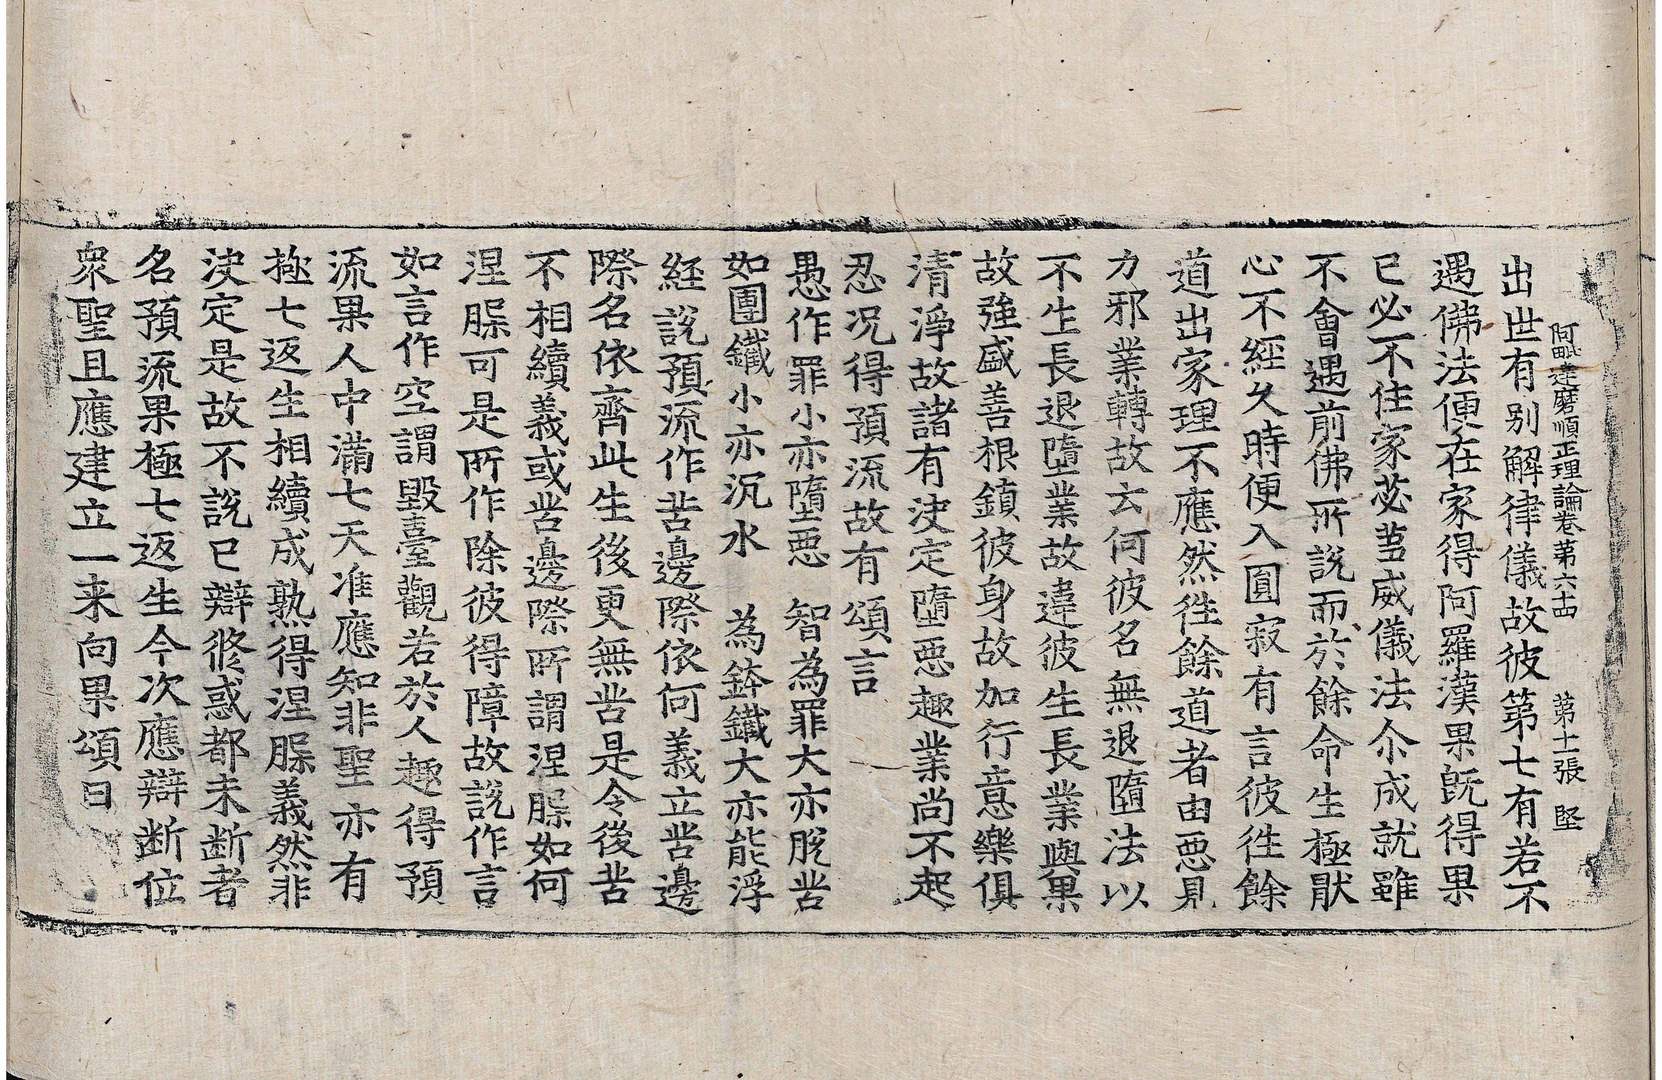 阿毗達磨順正理論卷第六十四　第十一張　堅
出世有别解律儀故彼第七有若不
遇佛法便在家得阿羅漢果旣得果
已必不住家苾蒭威儀法尒成就雖
不會遇前佛所說而於餘命生極猒
心不經久時便入圓寂有言彼徃餘
道出家理不應然徃餘道者由惡見
力邪業轉故云何彼名無退墮法以
不生長退墮業故違彼生長業與果
故強盛善根鎮彼身故加行意樂俱
清淨故諸有決定墮惡趣業尚不起
忍况得預流故有頌言
愚作罪小亦墮惡　智為罪大亦脫苦
如團鐵小亦沉水　為鉢鐵大亦能浮
經說預流作苦邊際依何義立苦邊
際名依齊此生後更無苦是令後苦
不相續義或苦邊際所謂涅槃如何
涅槃可是所作除彼得障故說作言
如言作空謂毀臺觀若於人趣得預
流果人中滿七天准應知非聖亦有
極七返生相續成熟得涅槃義然非
決定是故不說已辯修惑都未断者
名預流果極七返生今次應辯断位
衆聖且應建立一来向果頌曰